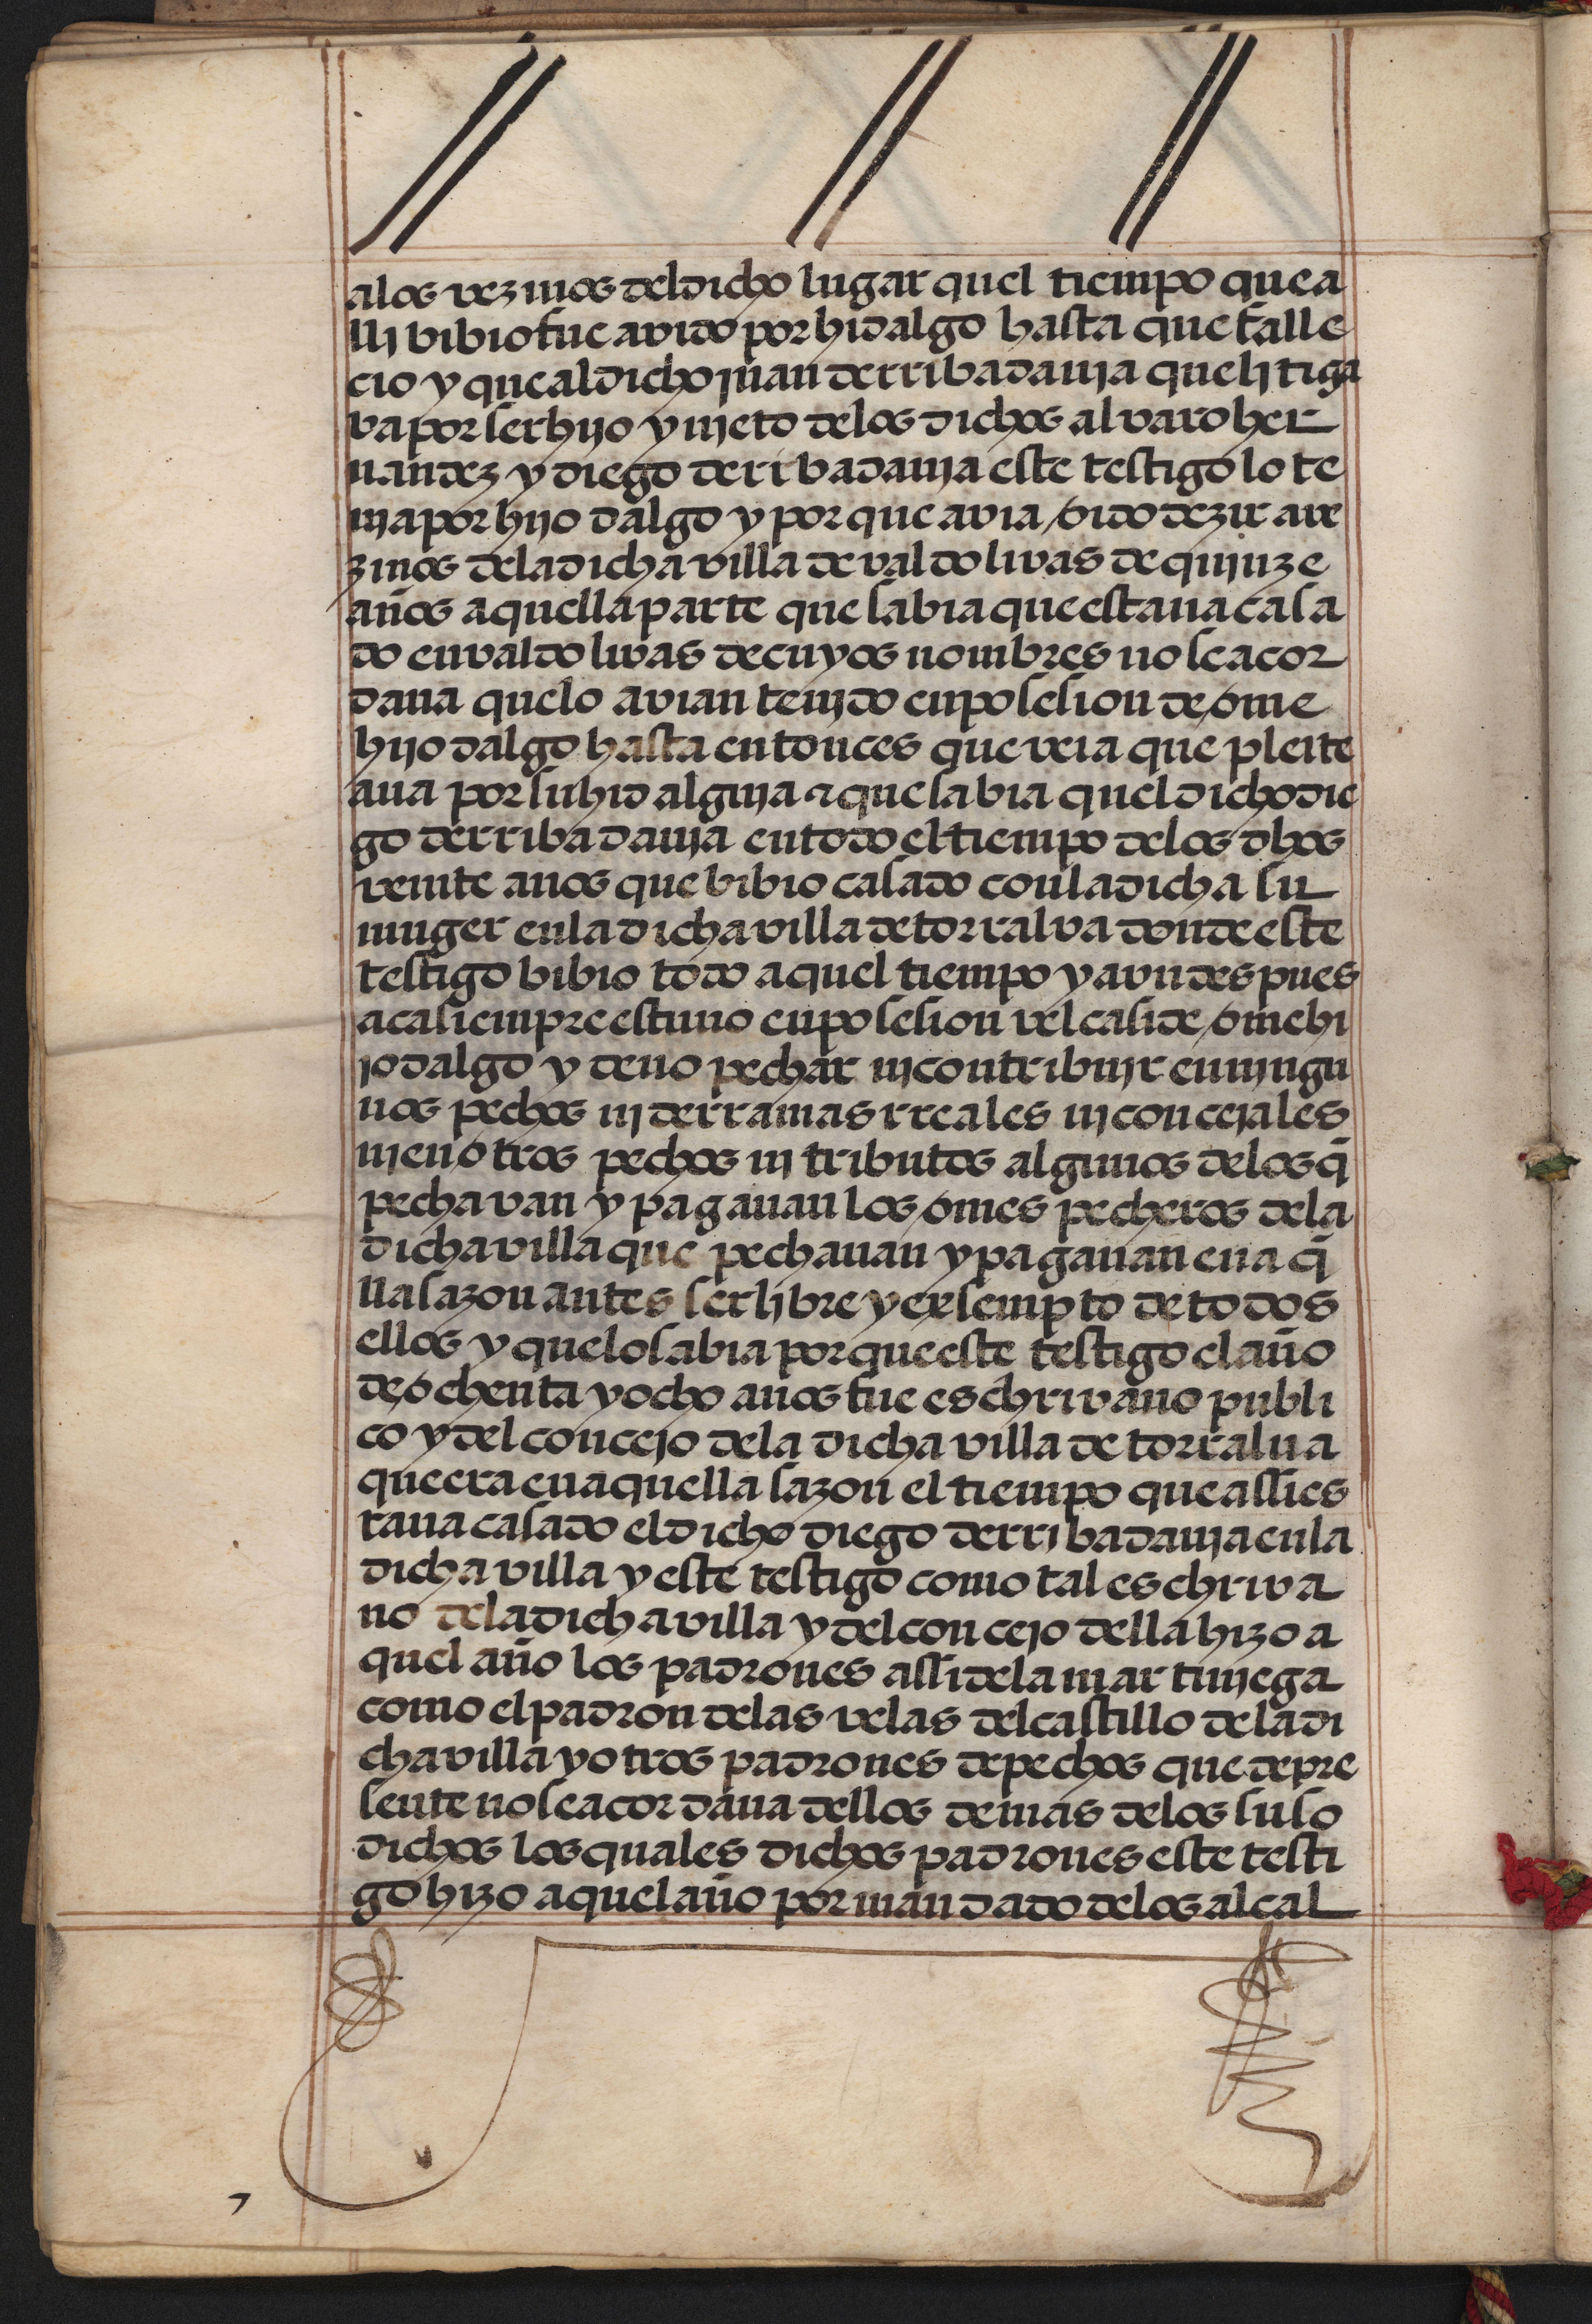 a los vezinos del dicho lugar quel tiempo que a
lli bibio fue avido por hidalgo hasta que falle
cio y que al dicho juan de rribadavia que litiga
va por ser hijo y nieto de los dichos alvaro her
nandez y diego de ribadavia este testigo lo te
nia por hijo dalgo y por que avia oido dezir a ve
zinos de la dicha villa de valdolivas de quinze
años a quella parte que sabia que estava casa
do en valdolivas de cuyos nombres no se acor
dava que lo avian tenido en posesion de ome
hijo dalgo hasta entonces que veia que pleite
ava por su hidalguia ⁊ que sabia quel dicho die
go de rribadavia en todo el tiempo de los dhos
veinte años que bibio casado con la dicha su
muger en la dicha villa de torralva donde este
testigo bibio todo aquel tiempo y avn despues
aca siempre estuvo en posesion vel casi de ome hi
jo dalgo y de no pechar ni contribuir en ningu
nos pechos ni derramas rreales ni concejales
ni en otros pechos ni tributos algunos de los q̄
pechavan y pagavan los omes pecheros de la
dicha villa que pechavan y pagavan en a q̄
lla sazon antes ser libre y exsempto de todos
ellos y que lo sabia por que este testigo el año
de ochenta y ocho años fue eschrivano publi
co y del concejo de la dicha villa de torralva
que era en aquella sazon el tiempo que assi es
tava casado el dicho diego de rribadavia en la
dicha villa y este testigo como tal eschriva
no de la dicha villa y del concejo della hizo a
quel año los padrones assi de la martiniega
como el padron de las velas del castillo de la di
cha villa y otros padrones de pechos que de pre
sente no se acordava dellos demas de los suso
dichos los quales dichos padrones este testi
go hizo aquel año por mandado de los alcal